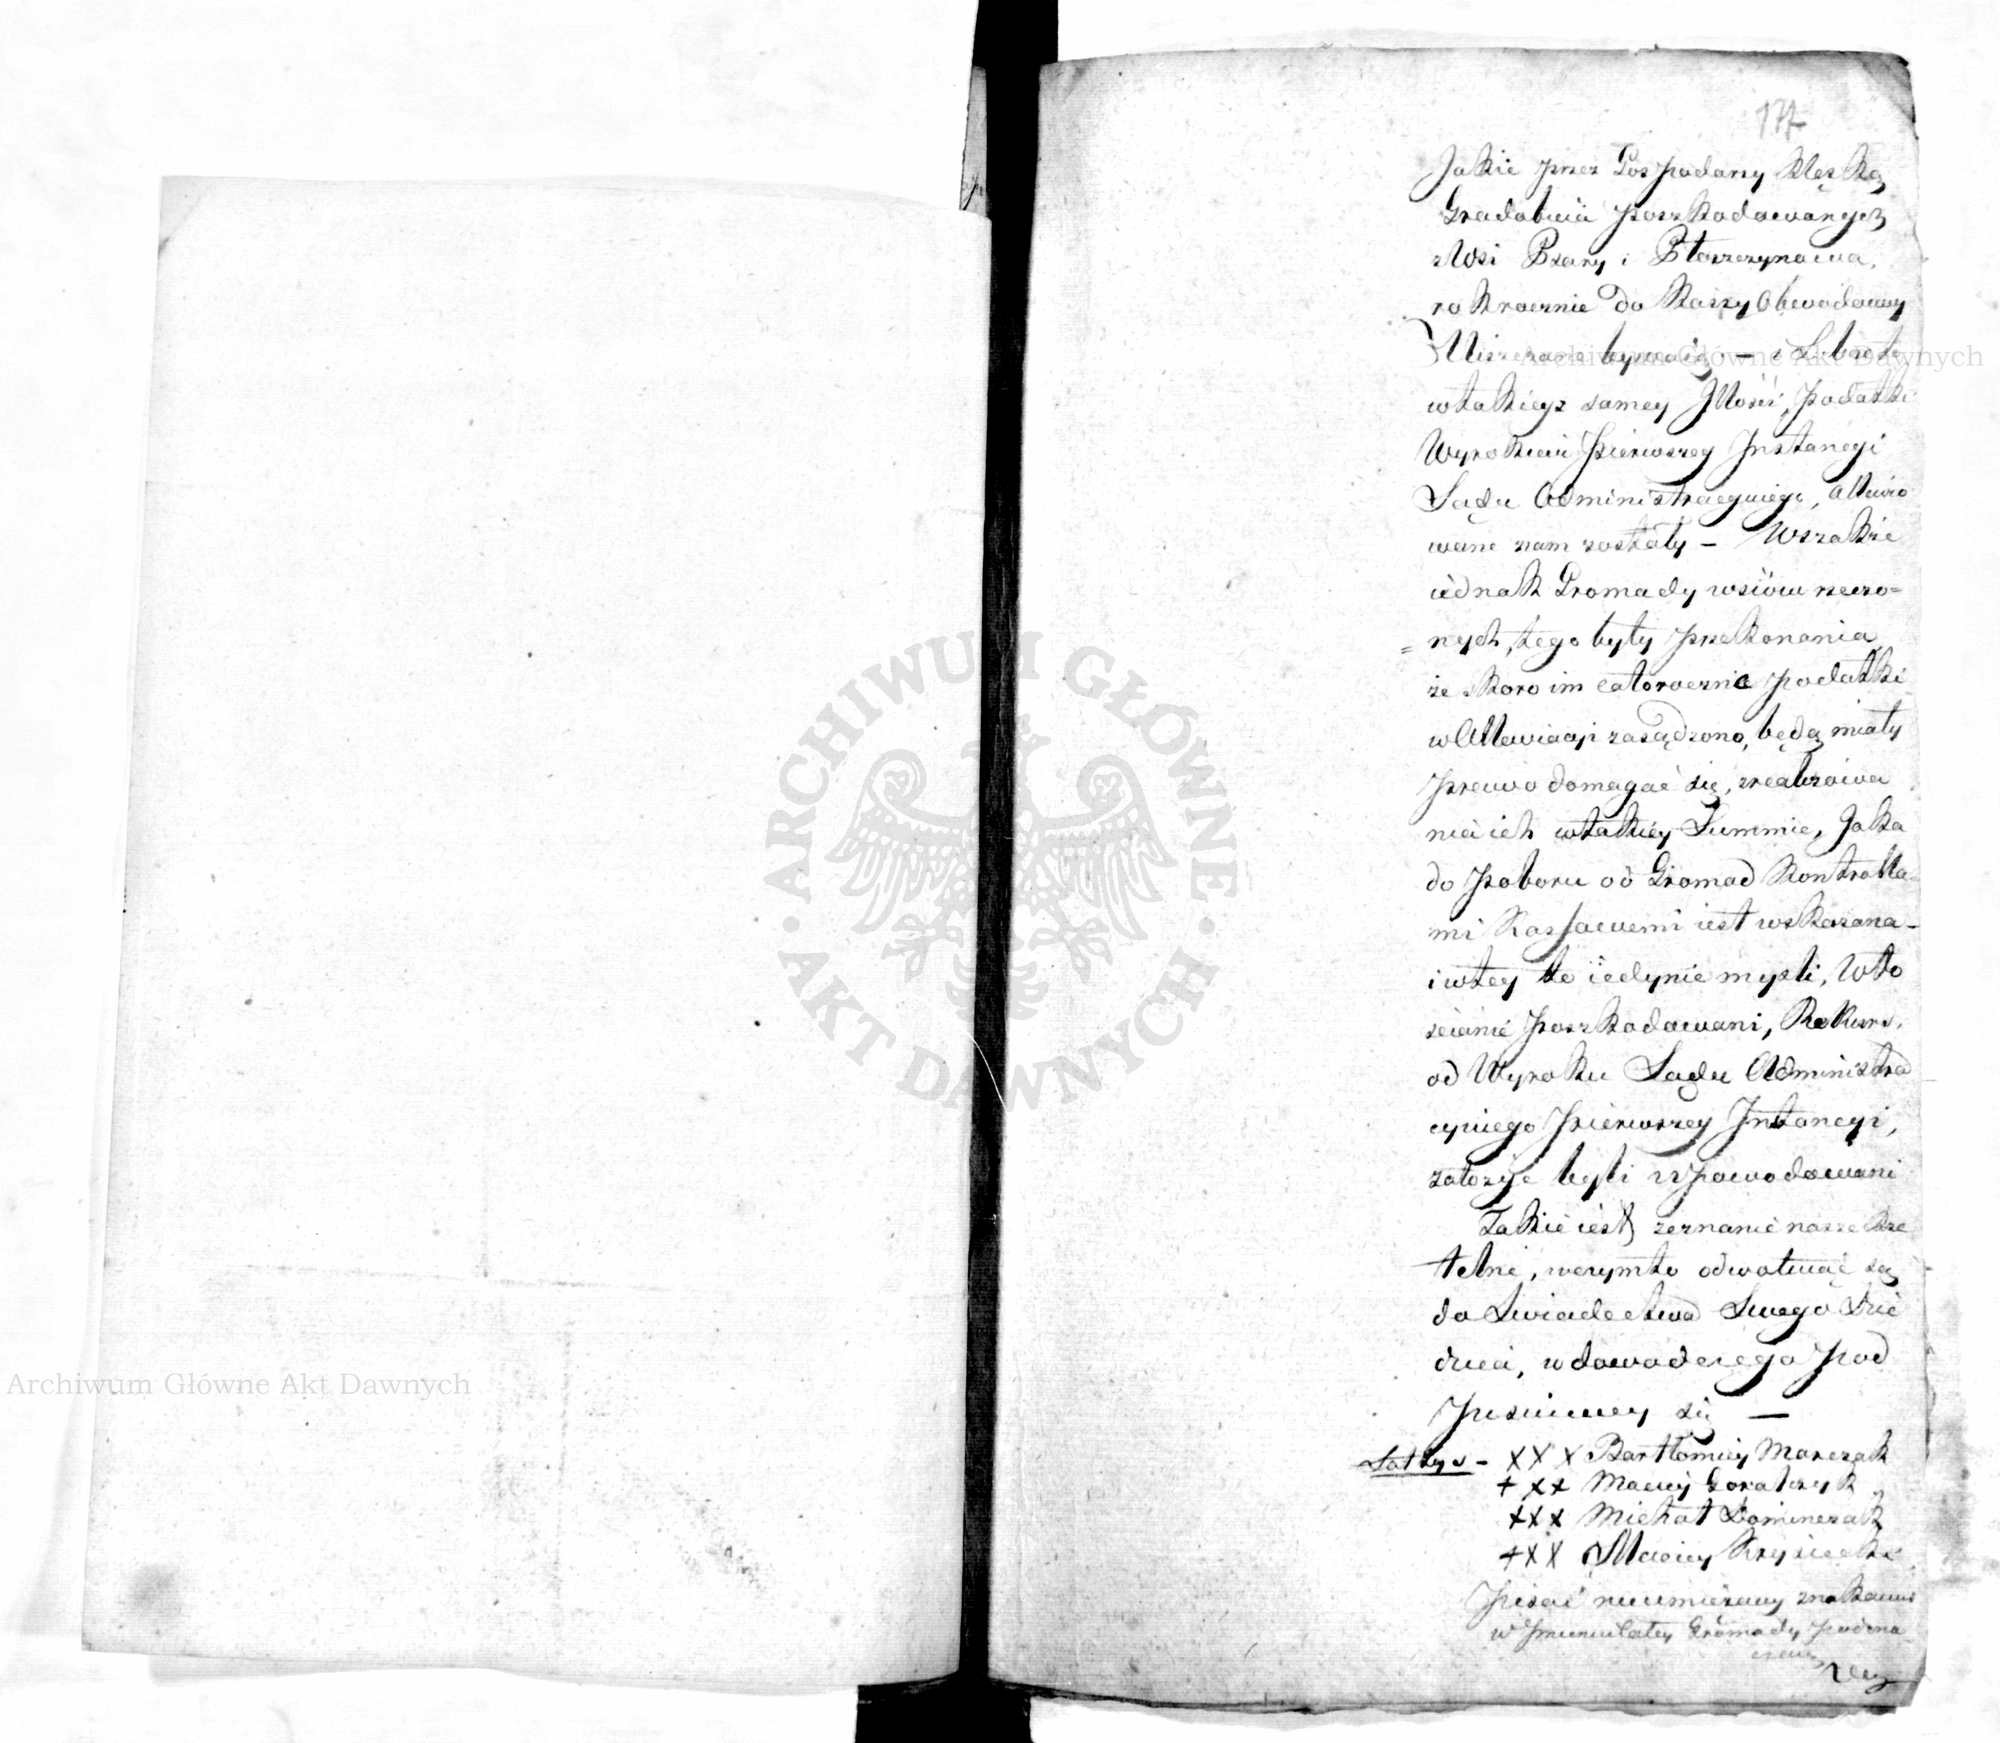 177
Jakie przez Gospodarzy klęską
Gradobicia poszkodowanych
z Wsi Psary i Starzynowa,
rokrocznie do Kassy Obwodowy
wtakieyz samey Jllości, Podatki
Wyrokiem Pierwszey Jnstancyi
Sądu Administracyinego, allewio
wane nam zostały – Wszakże
iednak Gromady wsiów rzeczo=
=nych, tego były przekonania
że skoro im całoroczne podatki
w Allewiacyi zasądzono, będą miały
prawo domagać się, zrealizowa
nia ich w takiey Summie, Jaka
do poboru od Gromad Kontrolla-
mi Kassowemi iest wskazana –
i wtey to iedynie myśli, Wło
ścianie poszkodowani, Rekurs,
od Wyroku Sądu Administra
cyinego Pierwszey Jnstancyi,
założyć byli spowodowani
Takie iest zeznanie nasze rze
telne, w czym to odwołuiąc się
do Swiadectwa Swego Dzie
dzica, w dowod czego Pod
pisuiemy się —
Sołtys – XXX Bartłomiey Marczak
+XX Maciey Goralczyk
XXX Michał Dominczak
+XX Maciey
Pisać nieumieiemy znakami
w Jmieniu całey Gromady podzna
czamy
Archiwum Główne Akt Dawnych
Archiwum Główne Akt Dawnych
ARCHIWUM GŁÓWNE · AKT DAWNYCH ·